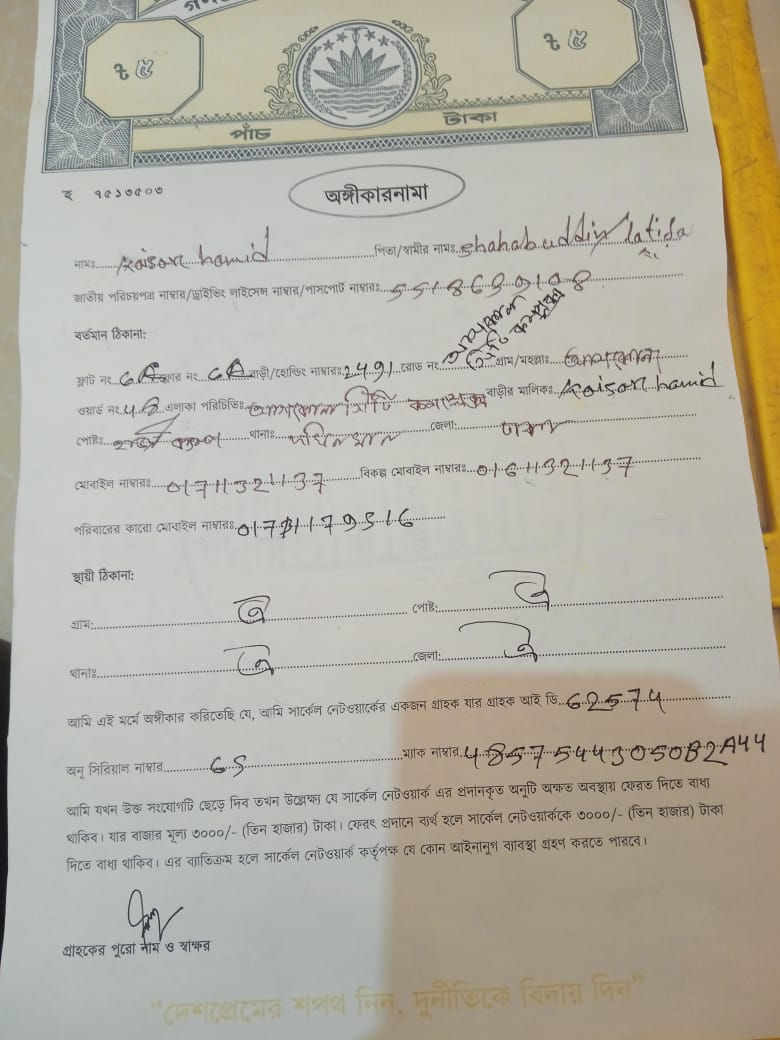 ৳ ৫
৳ ৫
পাঁচ টাকা
হ ৭৫১৩৫০৩
অঙ্গীকারনামা
নামঃ Raison hamid পিতা/স্বামীর নামঃ Shahabuddin/latifa
জাতীয় পরিচয়পত্র নাম্বার/ড্রাইভিং লাইসেন্স নাম্বার/পাসপোর্ট নাম্বারঃ
বর্তমান ঠিকানা:
ফ্লাট নং 6A ফ্লোর নং 6A বাড়ী/হোল্ডিং নাম্বারঃ 2491 রোড নং গ্রাম/মহল্লাঃ
ওয়ার্ড নং এলাকা পরিচিতিঃ সিটি বাড়ীর মালিকঃ Raison hamid
পোষ্টঃ থানাঃ জেলা:
মোবাইল নাম্বারঃ 01711321137 বিকল্প মোবাইল নাম্বারঃ 01611321137
পরিবারের কারো মোবাইল নাম্বারঃ
স্থায়ী ঠিকানা:
গ্রাম: ঐ পোষ্ট: ঐ
থানাঃ ঐ জেলা: ঐ
আমি এই মর্মে অঙ্গীকার করিতেছি যে, আমি সার্কেল নেটওয়ার্কের একজন গ্রাহক যার গ্রাহক আই ডি 62574
অনু সিরিয়াল নাম্বার GS ম্যাক নাম্বার 48575443050B2A44
আমি যখন উক্ত সংযোগটি ছেড়ে দিব তখন উল্লেক্ষ্য যে সার্কেল নেটওয়ার্ক এর প্রদানকৃত অনুটি অক্ষত অবস্থায় ফেরত দিতে বাধ্য
থাকিব। যার বাজার মূল্য ৩০০০/- (তিন হাজার) টাকা। ফেরৎ প্রদানে ব্যর্থ হলে সার্কেল নেটওয়ার্ককে ৩০০০/- (তিন হাজার) টাকা
দিতে বাধ্য থাকিব। এর ব্যতিক্রম হলে সার্কেল নেটওয়ার্ক কর্তৃপক্ষ যে কোন আইনানুগ ব্যাবস্থা গ্রহণ করতে পারবে।
গ্রাহকের পুরো নাম ও স্বাক্ষর
“দেশপ্রেমের শপথ নিন, দুর্নীতিকে বিদায় দিন”